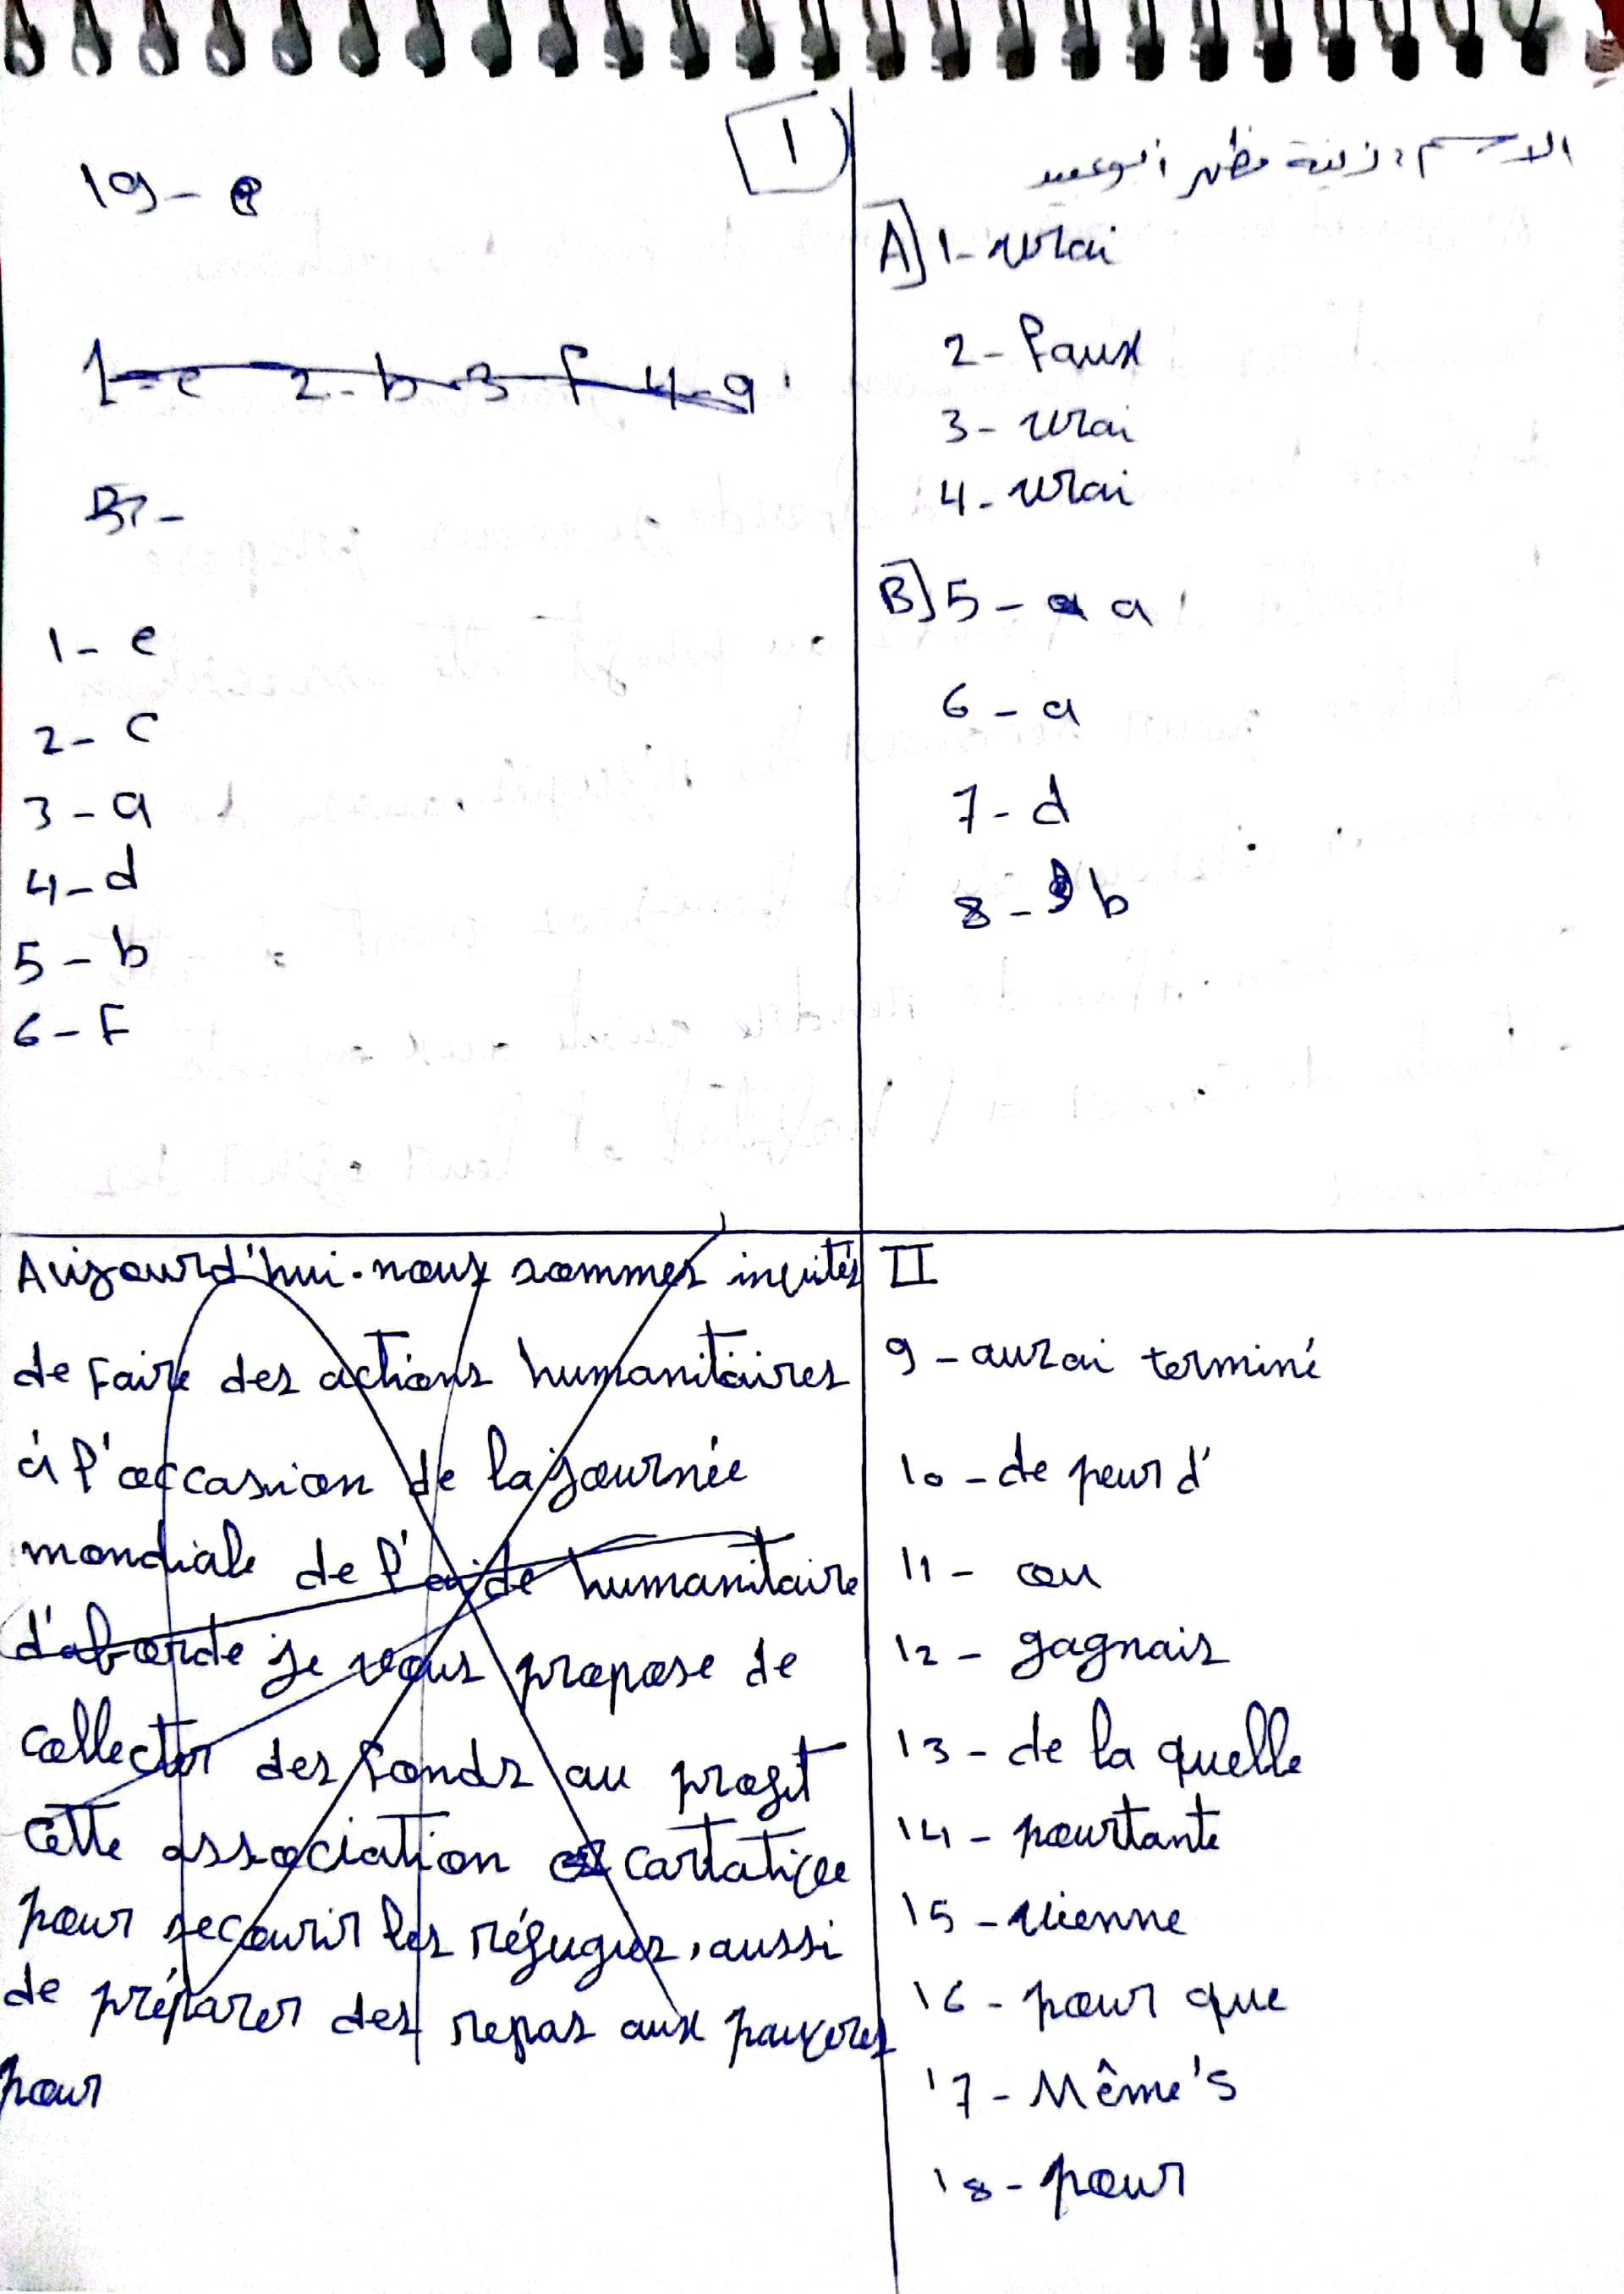 1
الاسم : زينة مظهر ابو عبيد
A] 1- vrai
2- Faux
3- vrai
4- vrai
B] 5- a
6- a
7- d
8- b
II
9- aurai terminé
10- de peur d'
11- ou
12- gagnais
13- de la quelle
14- pourtante
15- vienne
16- pour que
17- Même's
18- pour
19- e
1-e 2-b 3 f 4-a
B-
1- e
2- c
3- a
4- d
5- b
6- F
Aujourd'hui. nous sommes invités
de faire des actions humanitaires
à l'occasion de la journée
mondiale de l'aide humanitaire
d'aborde je vous propose de
collecter des fonds au profit
cette association cartative
pour secourir les réfugies, aussi
de préparer des repas aux pauvres
pour